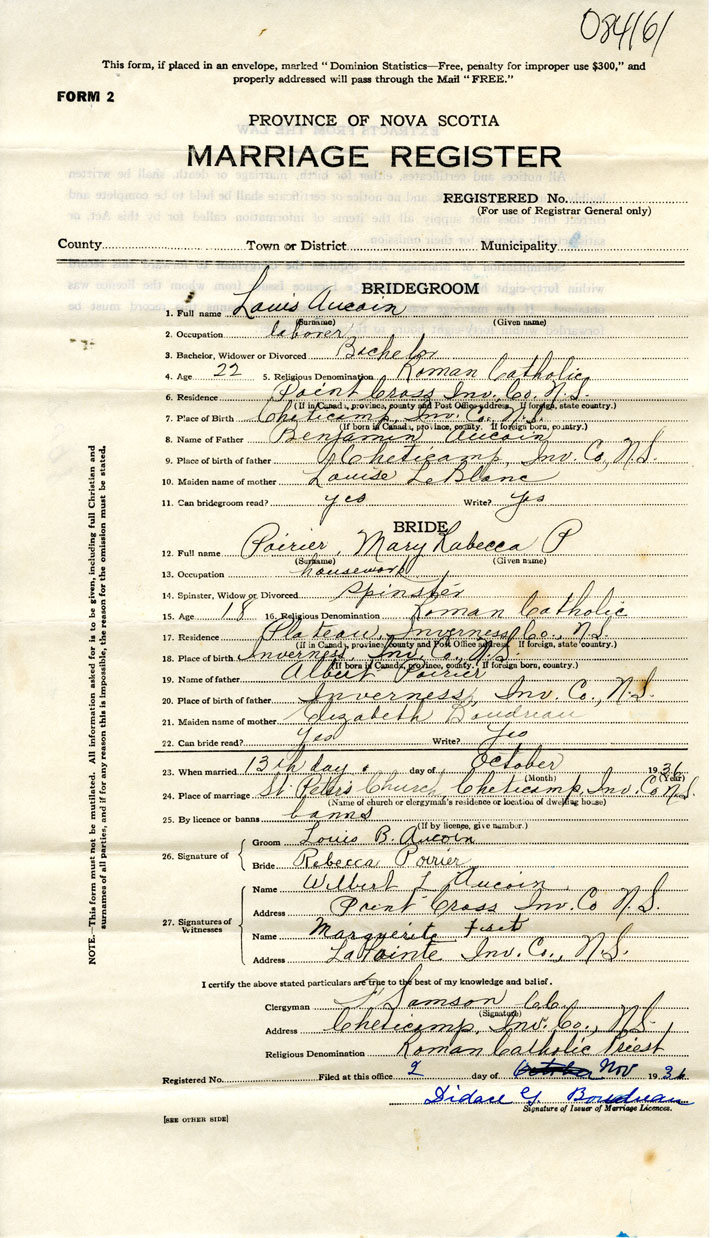 084161
This form, if placed in an envelope, marked "Dominion Statistics—Free, penalty for improper use $300," and
properly addressed will pass through the Mail "FREE."
FORM 2
PROVINCE OF NOVA SCOTIA
MARRIAGE REGISTER
REGISTERED No.
(For use of Registrar General only)
County Town or District Municipality
BRIDEGROOM
1. Full name Louis Aucoin
(Surname) (Given name)
2. Occupation laborer
3. Bachelor, Widower or Divorced Bachelor
4. Age 22 5. Religious Denomination Roman Catholic
6. Residence Point Cross Inv. Co. N.S.
(If in Canada, province, county and Post Office address. If foreign, state country.)
7. Place of Birth Cheticamp, Inv. Co. N.S.
(If born in Canada, province, county. If foreign born, country.)
8. Name of Father Benjamin Aucoin
9. Place of birth of father Cheticamp, Inv. Co, N.S.
10. Maiden name of mother Louise LeBlanc
11. Can bridegroom read? yes Write? yes
BRIDE
12. Full name Poirier, Mary Rabecca P
(Surname) (Given name)
13. Occupation housework
14. Spinster, Widow or Divorced Spinster
15. Age 18 16. Religious Denomination Roman Catholic
17. Residence Plateau, Inverness Co., N.S.
(If in Canada, province, county and Post Office address. If foreign, state country.)
18. Place of birth Inverness Inv Co., N.S.
(If born in Canada, province, county. If foreign born, country.)
19. Name of father Albert Poirier
20. Place of birth of father Inverness, Inv. Co., N.S.
21. Maiden name of mother Elizabeth Boudreau
22. Can bride read? Yes Write? Yes
23. When married 13th day day of October 1936
(Month) (Year)
24. Place of marriage St. Peter's Church, Cheticamp, Inv. Co N.S.
(Name of church or clergyman's residence or location of dwelling house)
25. By licence or banns banns
(If by licence, give number.)
26. Signature of Groom Louis B. Aucoin
Bride Rebecca Poirier
27. Signatures of Witnesses Name Wilbert J. Aucoin
Address Point Cross Inv. Co N.S.
Name Marguerite Fiset
Address LaPointe Inv. Co., N.S.
I certify the above stated particulars are true to the best of my knowledge and belief.
Clergyman Samson C.C.
(Signature)
Address Cheticamp, Inv. Co., N.S.
Religious Denomination Roman Catholic Priest
Registered No. Filed at this office 2 day of Nov 1936
Didace G. Boudreau
Signature of Issuer of Marriage Licences.
[SEE OTHER SIDE]
NOTE.—This form must not be mutilated. All information asked for is to be given, including full Christian and
surnames of all parties, and if for any reason this is impossible, the reason for the omission must be stated.